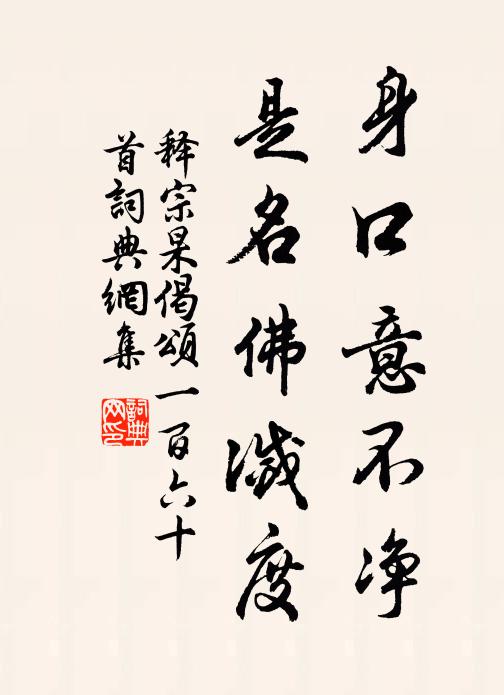 身口意不净
是名佛滅度
释宗杲偈頌一百六十
首詞典網集
詞典网印